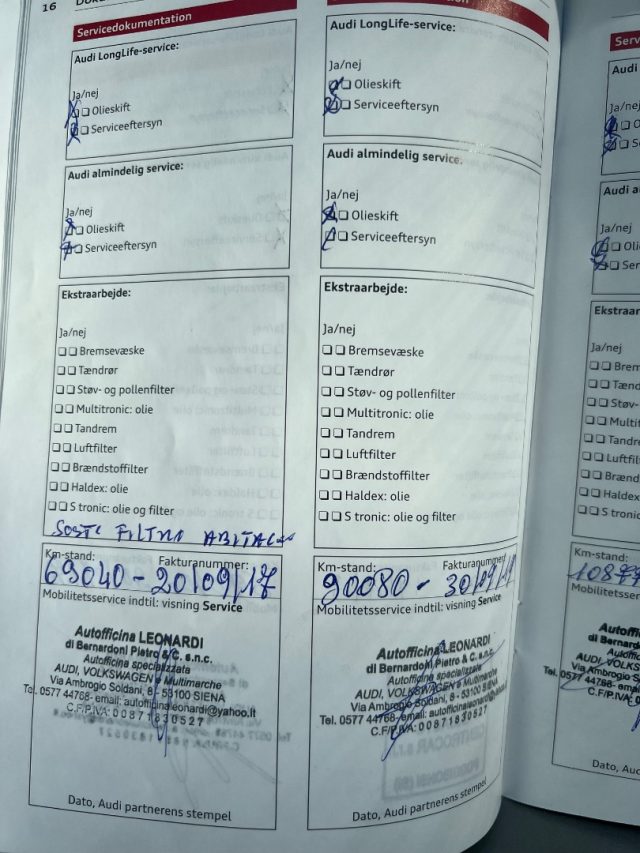 16
Servicedokumentation
Audi LongLife-service:
Ja/nej
Olieskift
Serviceeftersyn
Audi almindelig service:
Ja/nej
Olieskift
Serviceeftersyn
Ekstraarbejde:
Ja/nej
Bremsevæske
Tændrør
Støv- og pollenfilter
Multitronic: olie
Tandrem
Luftfilter
Brændstoffilter
Haldex: olie
S tronic: olie og filter
SOST. FILTRO ABITAC
Km-stand: Fakturanummer:
69040 - 20/09/17
Mobilitetsservice indtil: visning Service
Autofficina LEONARDI
di Bernardoni Pietro & C. s.n.c.
Autofficina specializzata
AUDI, VOLKSWAGEN e Multimarche
Via Ambrogio Soldani, 8 - 53100 SIENA
Tel. 0577 44768- email: autofficinaleonardi@yahoo.it
C.F/P.IVA: 00871830527
Dato, Audi partnerens stempel
Audi LongLife-service:
Ja/nej
Olieskift
Serviceeftersyn
Audi almindelig service:
Ja/nej
Olieskift
Serviceeftersyn
Ekstraarbejde:
Ja/nej
Bremsevæske
Tændrør
Støv- og pollenfilter
Multitronic: olie
Tandrem
Luftfilter
Brændstoffilter
Haldex: olie
S tronic: olie og filter
Km-stand: Fakturanummer
90080 -
Mobilitetsservice indtil: visning Service
Autofficina LEONARDI
di Bernardoni Pietro & C. s.n.c.
Autofficina specializzata
AUDI, VOLKSWAGEN e Multimarche
Via Ambrogio Soldani, 8 - 53100 SIENA
Tel. 0577 44768- email: autofficinaleonardi@
C.F/P.IVA: 00871830527
Dato, Audi partnerens stempel
Audi
Ja/nej
Audi al
Ja/nej
Ekstraar
Ja/nej
Brem
Tænd
Støv-
Multit
Tandre
Luftfil
Brænd
Haldex
S tron
Km-stand:
1087
Mobilitetsser
Autoffi
di Bernardoni
Autoffic
AUDI, VOLKS
Via Ambrogio So
Tel. 0577 44768- em
C.F/P.IVA: 0
Dato, Aud